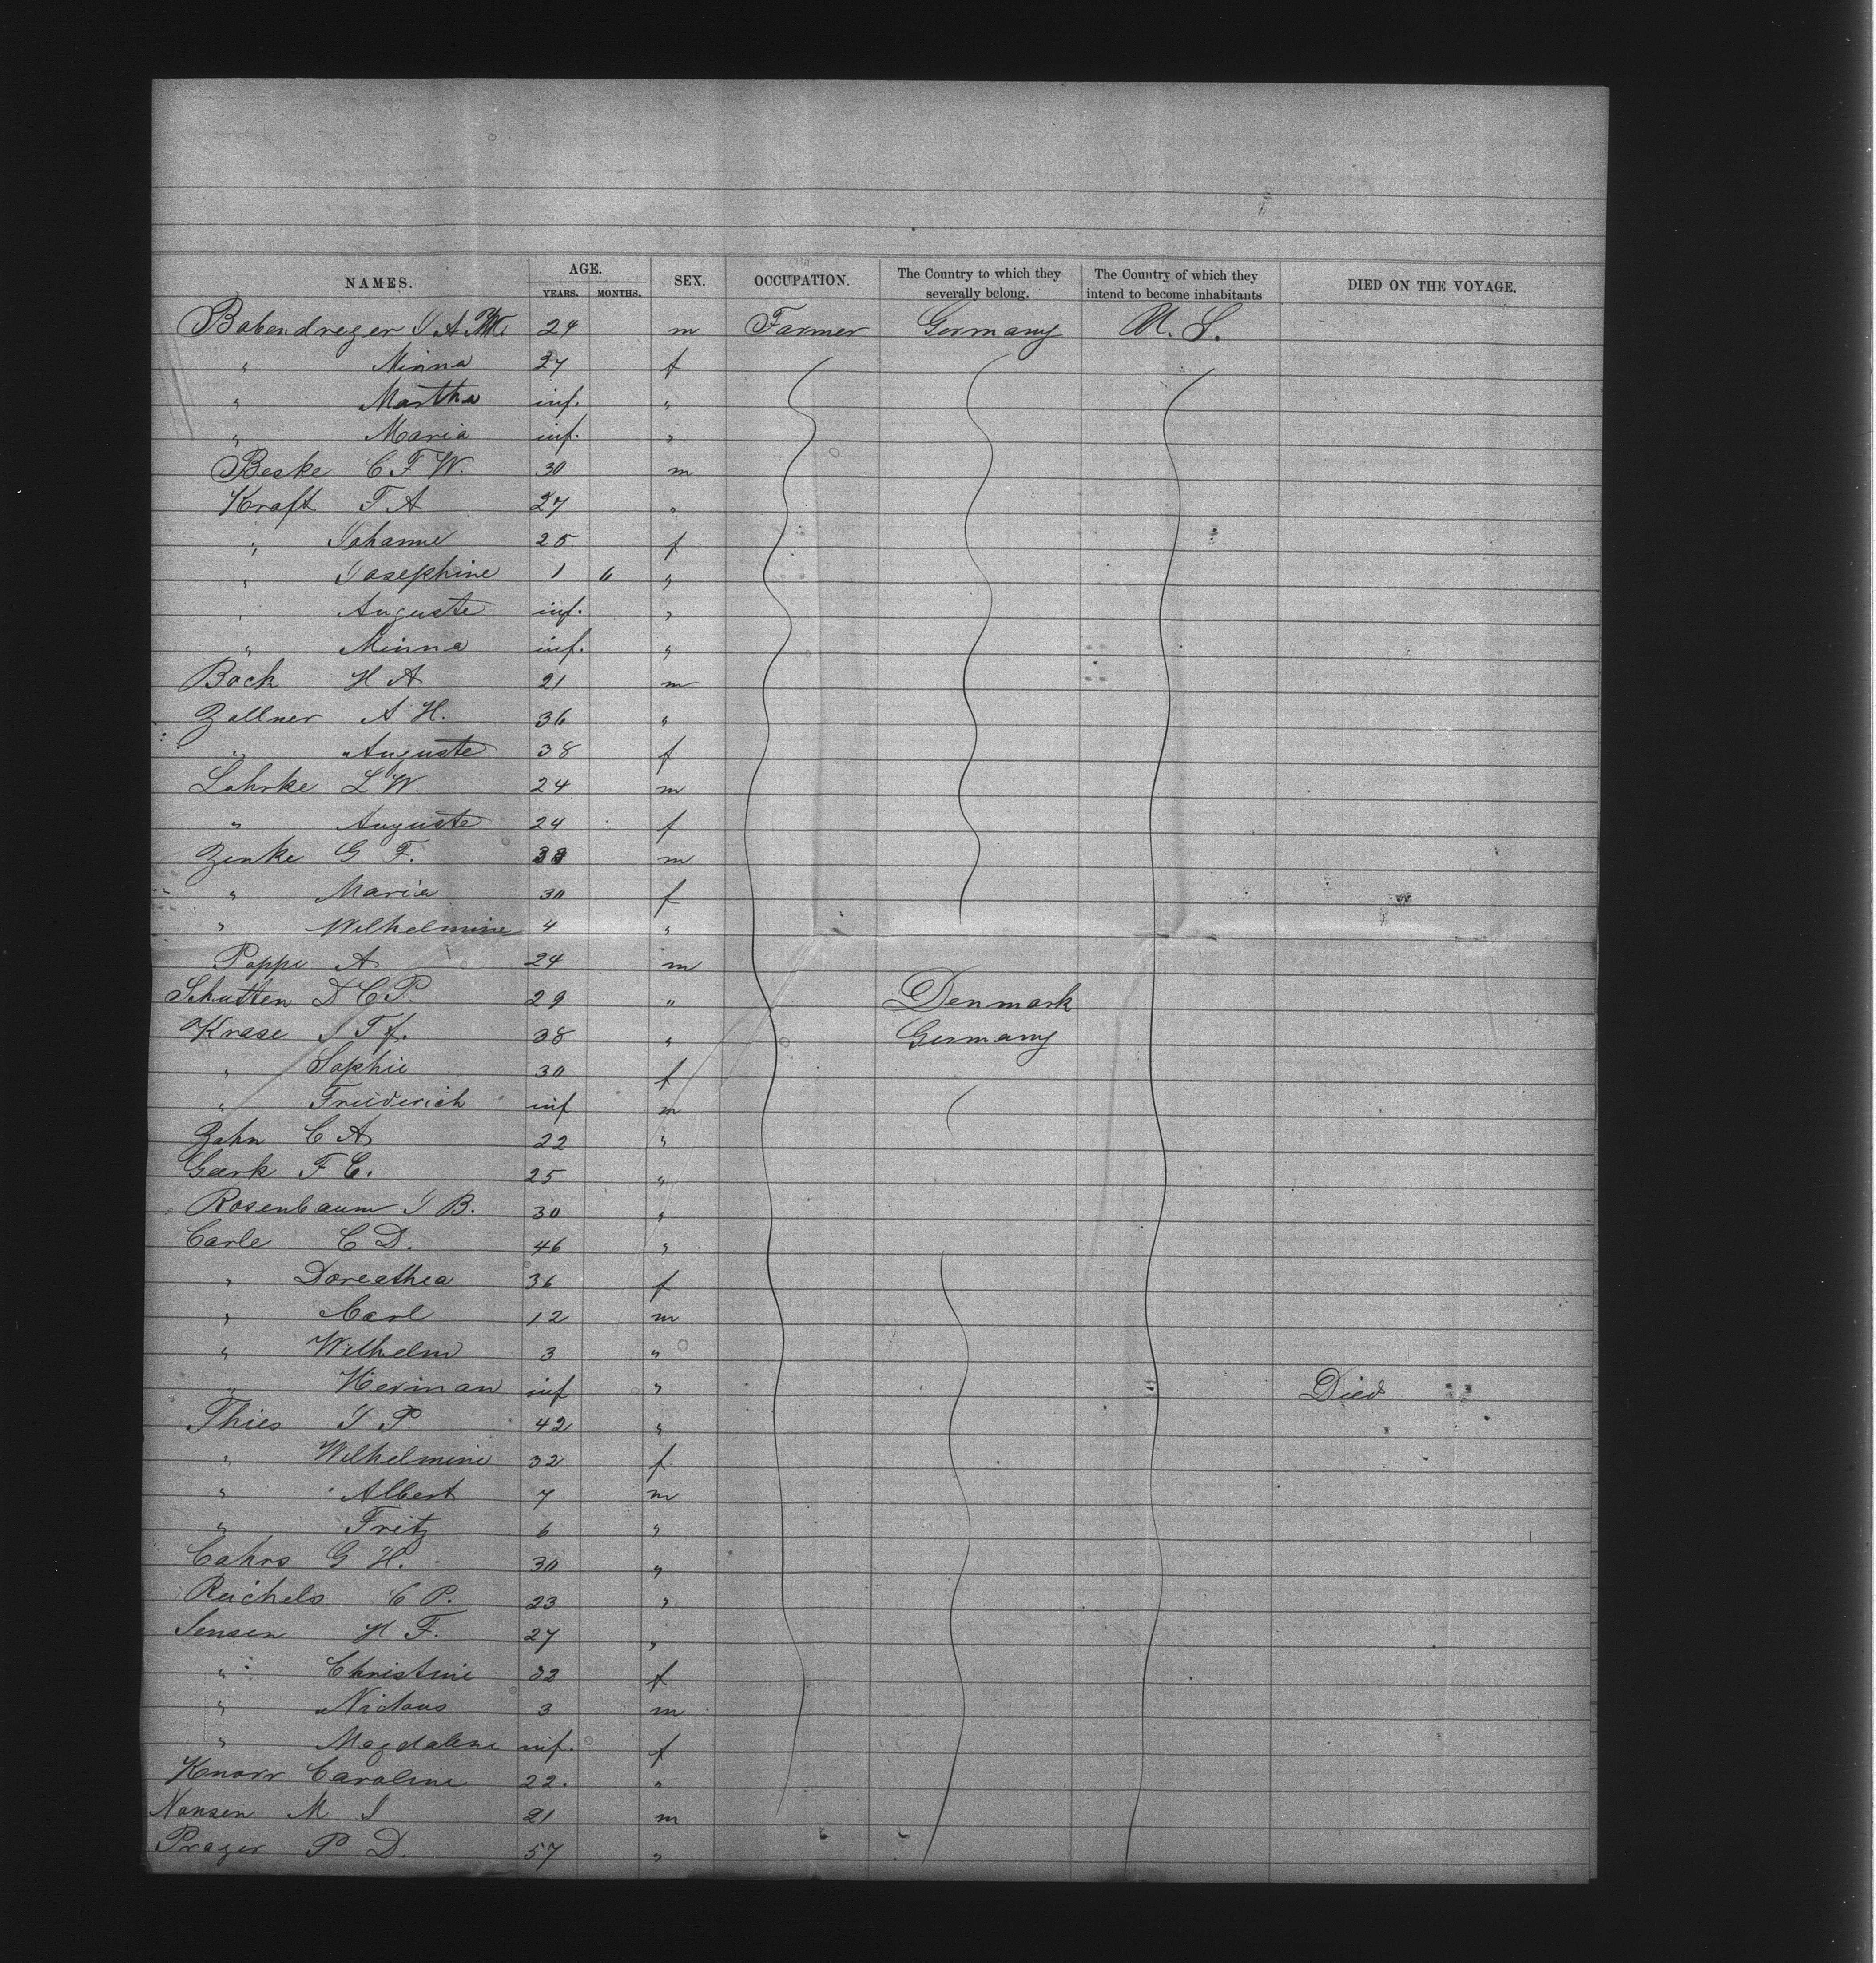 NAMES. AGE. SEX. OCCUPATION. The Country to which they severally belong. The Country of which they intend to become inhabitants DIED ON THE VOYAGE.
YEARS. MONTHS.
Babendreyer J A 24 m Farmer Germany U. S.
" Minna 27 f
" Martha inf. "
" Maria inf. "
Beske C F W. 30 m
Kraft F A 27 "
" Johanne 25 f
" Josephine 1 6 "
" Auguste inf. "
" Minna inf. "
Bock H A 21 m
Zollner A H. 36 "
" Auguste 38 f
Lohrke L W. 24 m
" Auguste 24 f
Zenke G F. 33 m
" Maria 30 f
" Wilhelmine 4 "
Poppe A 24 m
Schutten D C P. 29 " Denmark
Krase J F f. 38 " Germany
" Sophie 30 f
" Friederich inf m
Zahn C A 22 "
Geerk F C. 25 "
Rosenbaum J B. 30 "
Carle C D. 46 "
" Doreathea 36 f
" Carl 12 m
" Wilhelm 3 "
" Herman inf " Died
Thies J P. 42 "
" Wilhelmine 32 f
" Albert 7 m
" Fritz 6 "
Cahrs G H. 30 "
Reichels C P. 23 "
Jensen H F. 27 "
" Christine 32 f
" Niclaus 3 m
" Magdalene inf. f
Knorr Caroline 22. "
Nansen M J 21 m
Prazer P D. 57 "